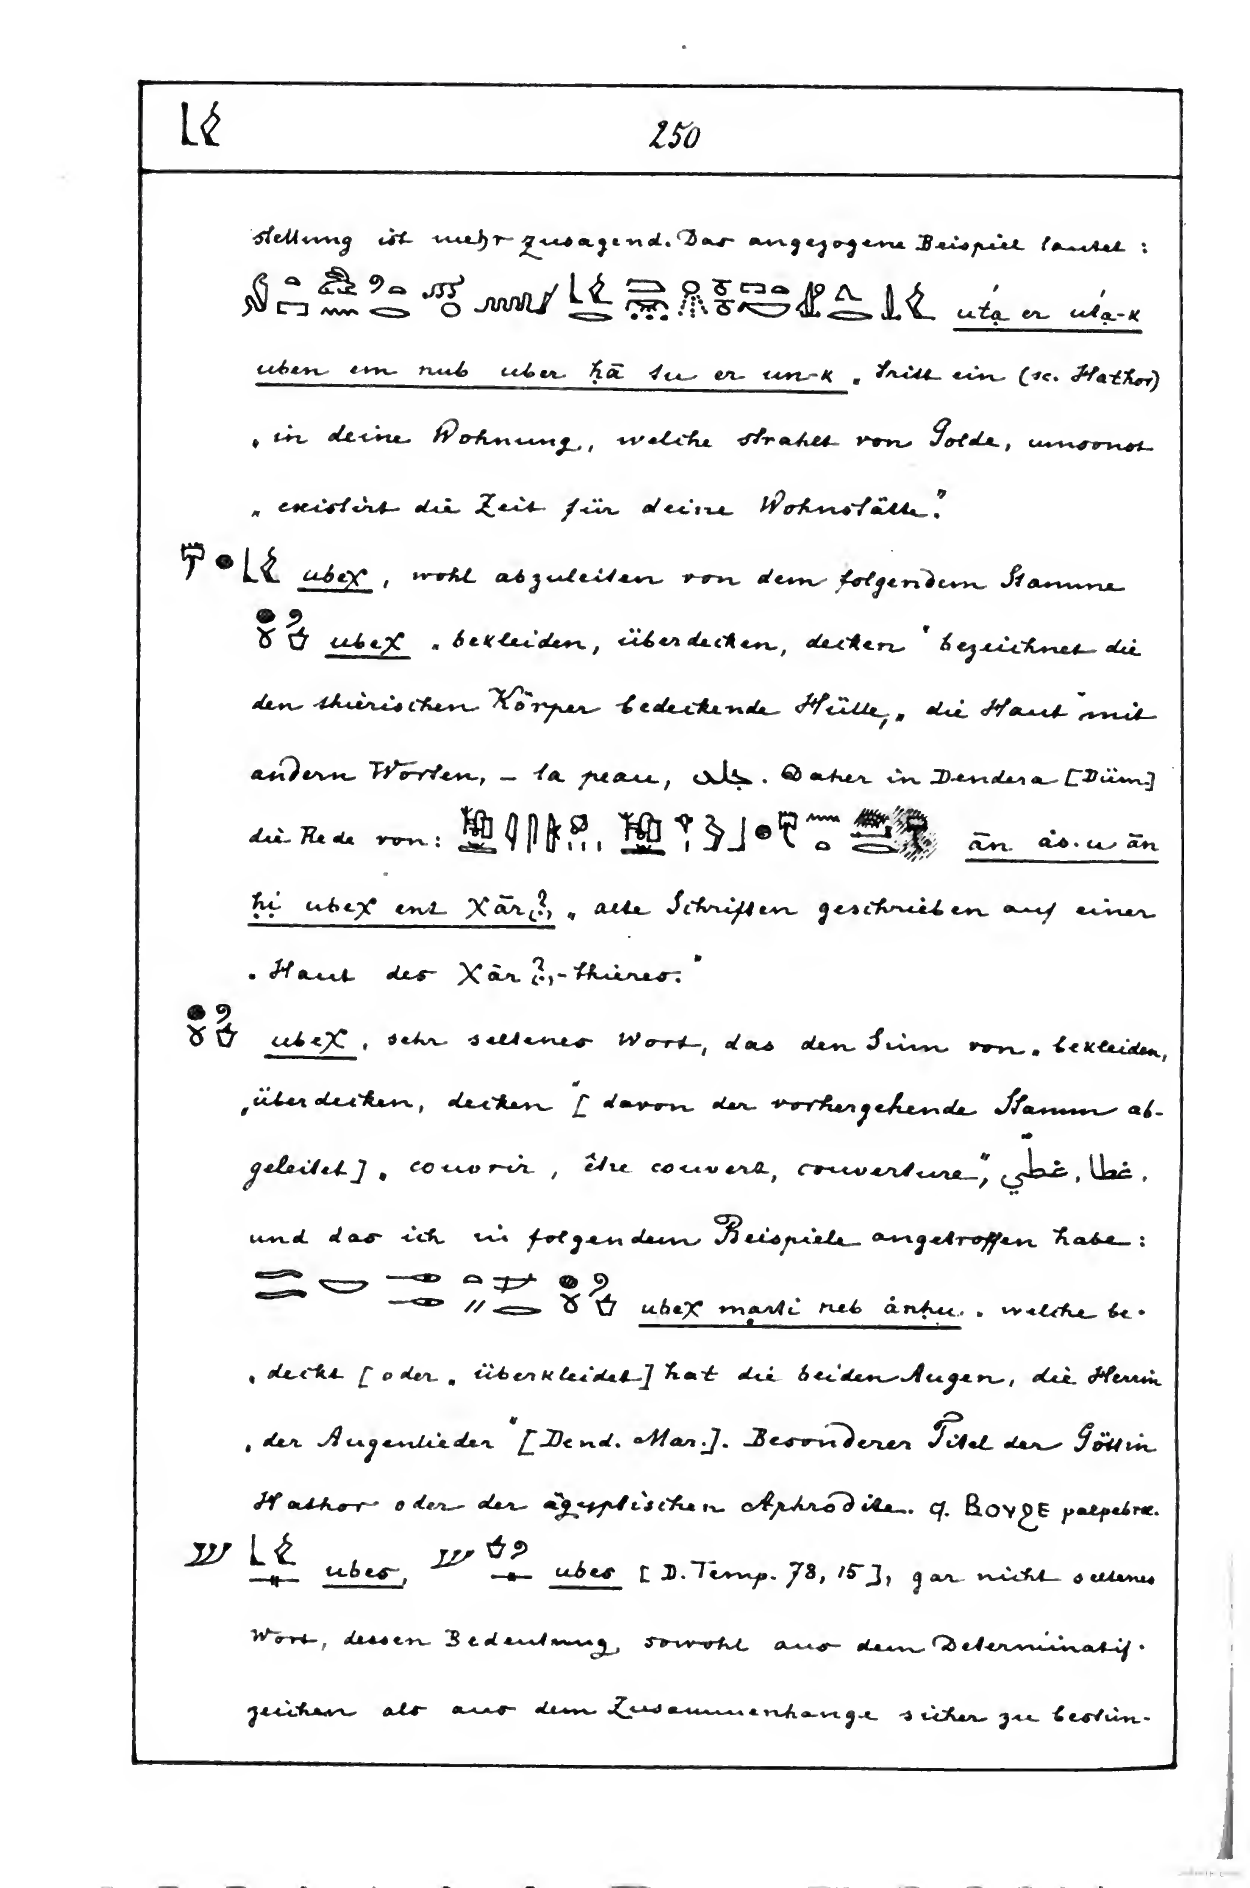 250
stellung ist mehr zusagend. Das angezogene Beispiel lautet :
er
uben em nub uber ḥā su er un-k „tritt ein (sc. Hathor)
„in deine Wohnung, welche strahlt von Golde, umsonst
„existirt die Zeit für deine Wohnstätte."
ubeχ, wohl abzuleiten von dem folgendem Stamme
ubeχ „bekleiden, überdecken, decken" bezeichnet die
den thierischen Körper bedeckende Hülle, „die Haut" mit
andern Worten, – la peau, جلد. Daher in Dendera [Düm.]
die Rede von: ān ȧs.u ān
ḥi ubeχ ent χār(?) „alte Schriften geschrieben auf einer
„Haut des χār(?)-thieres."
ubeχ, sehr seltenes Wort, das den Sinn von „bekleiden,
„überdecken, decken" [davon der vorhergehende Stamm ab-
geleitet] „couvrir, être couvert, couverture", غطا, غطّي,
und das ich in folgendem Beispiele angetroffen habe :
ubeχ marti neb ȧnḥu „welche be-
„deckt [oder „überkleidet] hat die beiden Augen, die Herrin
„der Augenlieder" [Dend. Mar.]. Besonderer Titel der Göttin
Hathor oder der ägyptischen Aphrodite. cf. ⲂⲞⲨϨⲈ palpebræ.
ubes, ubes [D. Temp. 78, 15], gar nicht seltenes
Wort, dessen Bedeutung, sowohl aus dem Determinatif-
zeichen als aus dem Zusammenhange sicher zu bestim-